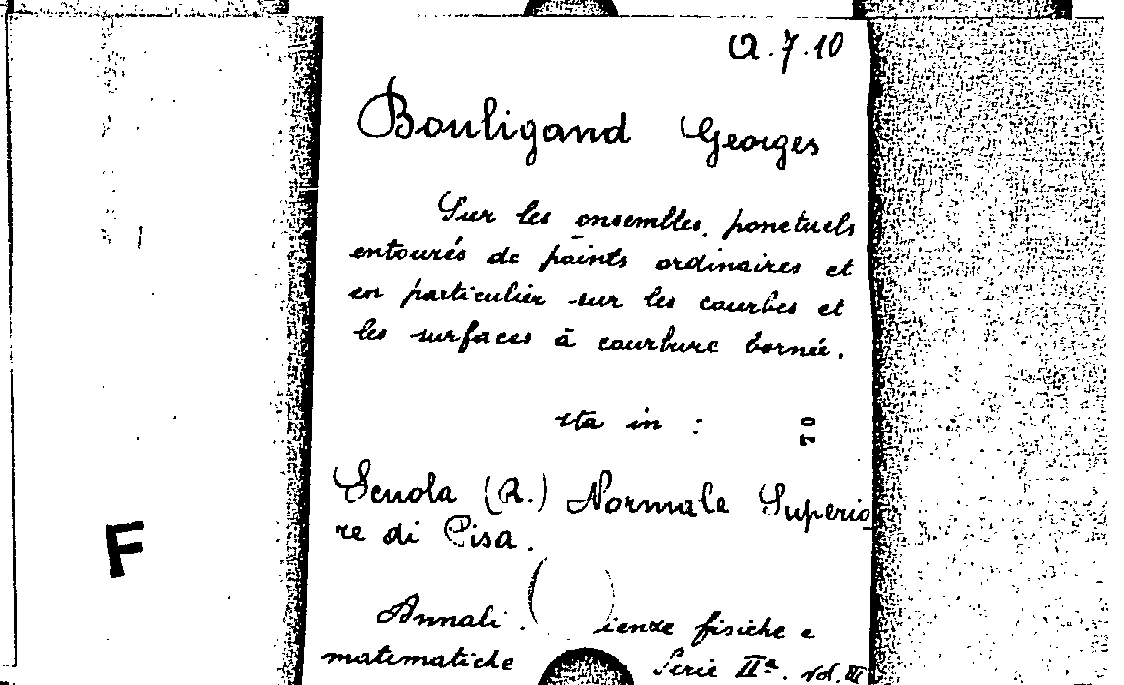 Q.7.10
Bouligand Georges
Sur les ensembles ponctuels
entourés de points ordinaires et
en particulier sur les courbes et
les surfaces à courbure bornée.
sta in :
70
Scuola (R.) Normale Superio
re di Pisa.
Annali. ienze fisiche e
matematiche Serie IIª. vol. III
F